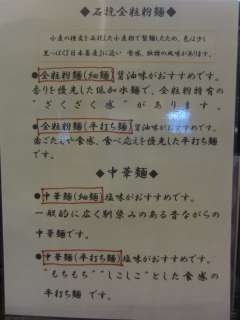 ◆石挽全粒粉麺◆
小麦の種皮を
色は少し
黒っぽく「日本蕎麦」に近い食感、独特の風味があります。
●全粒粉麺(細麺)醤油味がおすすめです。
香りを優先した低加水麺で、全粒粉特有の
"ざくざく感"があります。
●全粒粉麺(平打ち麺)醤油味がおすすめです。
歯ごたえや食感、食べ応えを優先した平打ち麺
です。
◆中華麺◆
●中華麺(細麺)塩味がおすすめです。
一般的に広く馴染みのある昔ながらの
中華麺です。
●中華麺(平打ち麺)塩味がおすすめです。
"もちもち""しこしこ"とした食感の
平打ち麺です。